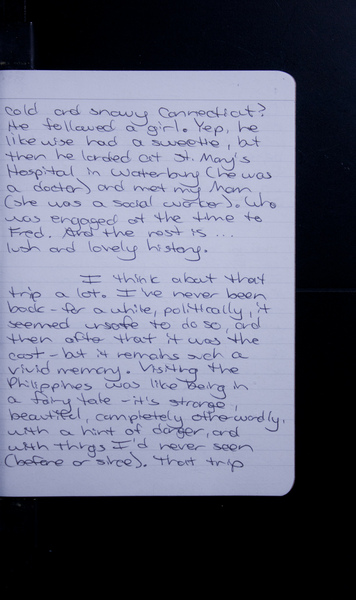 cold and snowy Connecticut?
He followed a girl. Yep, he
likewise had a sweetie, but
then he landed at St. Mary's
Hospital in Waterbury (he was
a doctor) and met my Mom
(she was a social worker). Who
was engaged at the time to
Fred. And the rest is ...
lush and lovely history.
I think about that
trip a lot. I've never been
back - for a while, politically, it
seemed unsafe to do so, and
then after that it was the
cost - but it remains such a
vivid memory. Visiting the
Philippines was like being in
a fairy tale - it's strange,
beautiful, completely otherworldly,
with a hint of danger, and
with things I'd never seen
(before or since). That trip